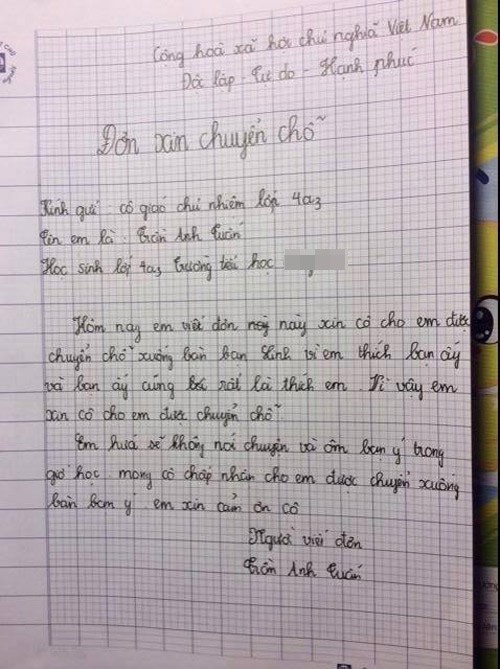 Cộng hoà xã hội chủ nghĩa Việt Nam
Độc lập - Tự do - Hạnh phúc
Đơn xin chuyển chỗ
Kính gửi cô giáo chủ nhiệm lớp 4a3
Tên em là : Trần Anh Tuấn
Học sinh lớp 4a3 trường tiểu học
Hôm nay em viết đơn này xin cô cho em được
chuyển chỗ xuống bàn bạn Hinh vì em thích bạn ấy
và bạn ấy cũng rất là thích em . Vì vậy em
xin cô cho em được chuyển chỗ
Em hứa sẽ không nói chuyện và ôm bạn ý trong
giờ học . mong cô chấp nhận cho em được chuyển xuống
bàn bạn ý . em xin cảm ơn cô
Người viết đơn
Trần Anh Tuấn